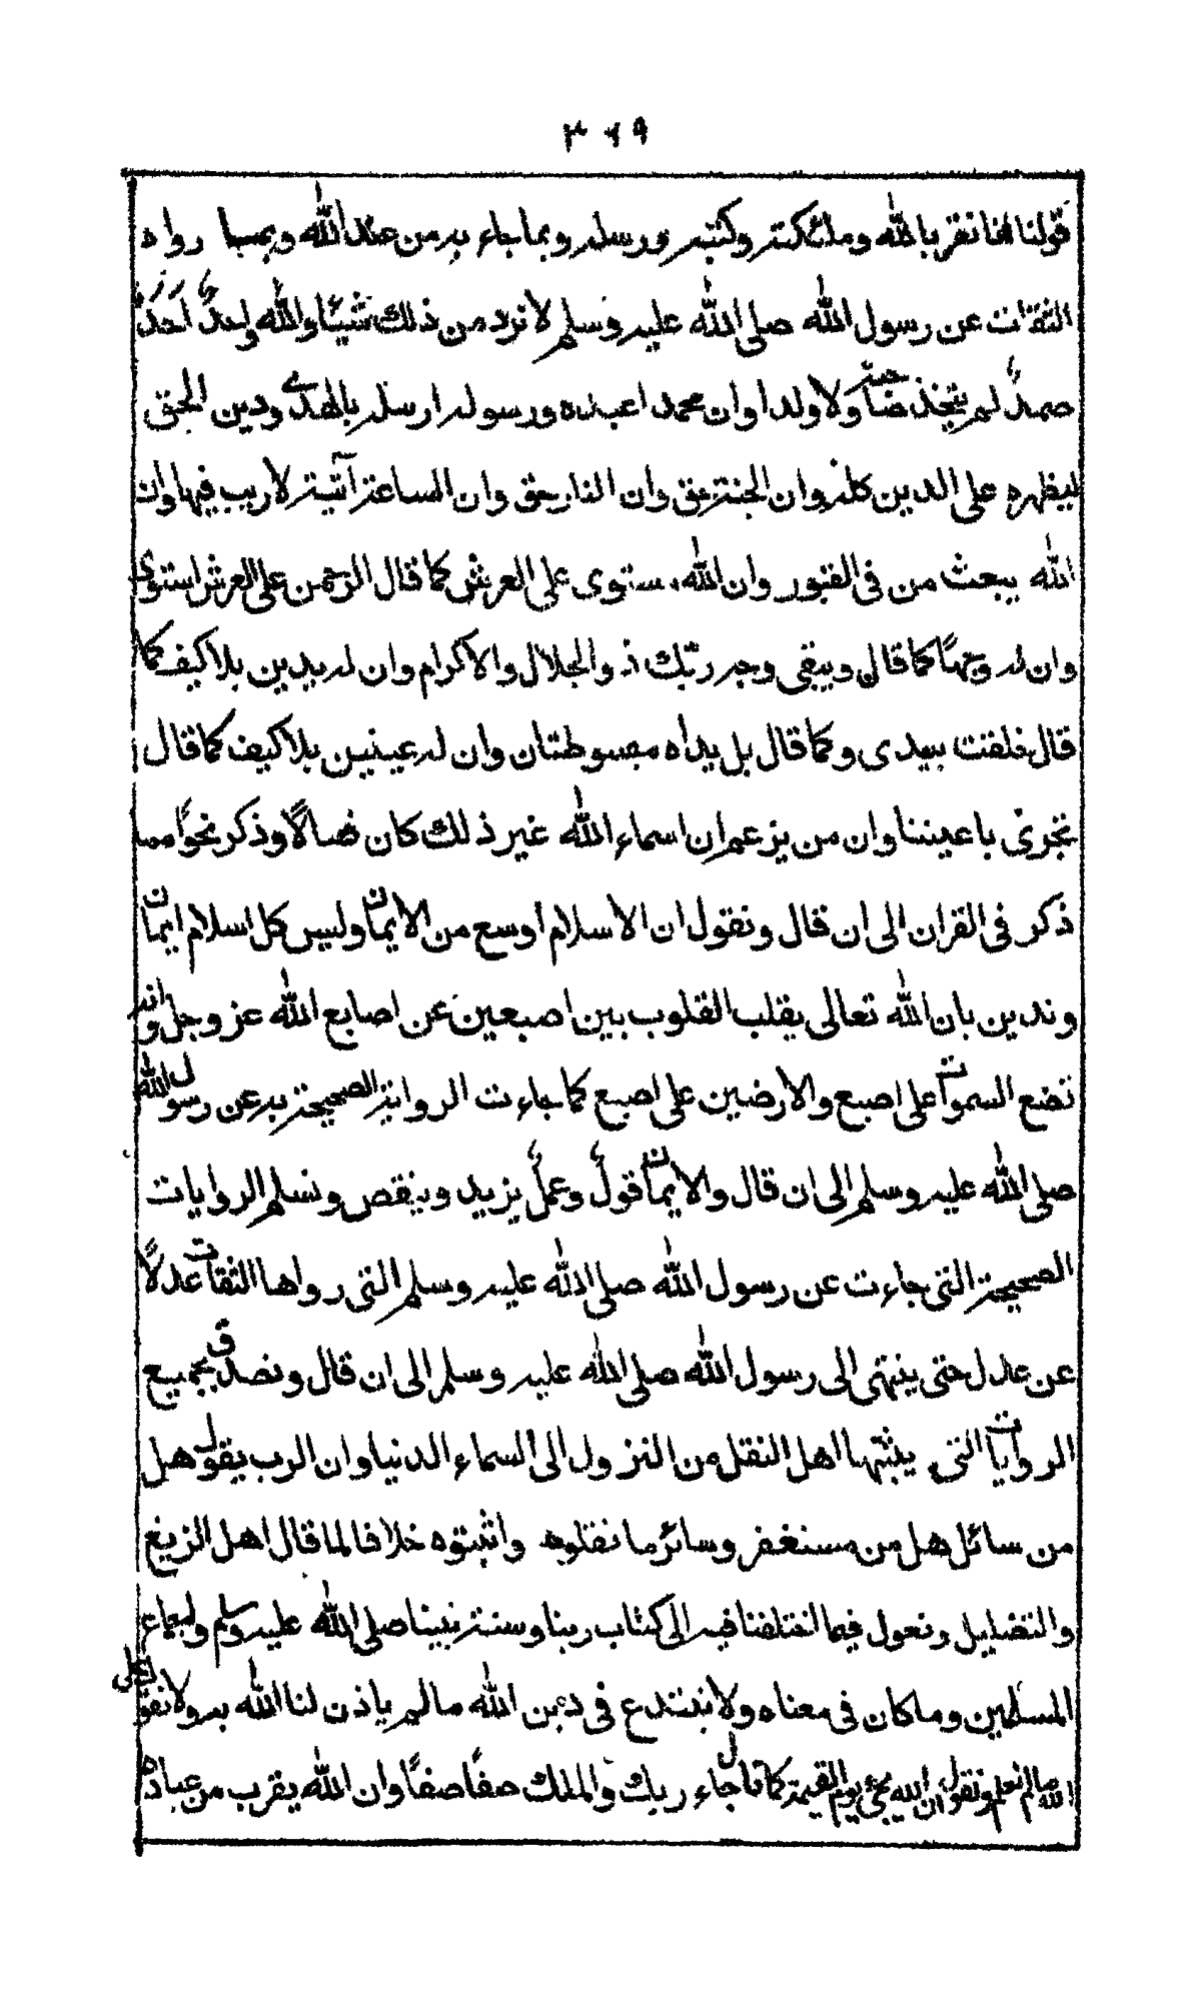 ٣٢٩
قولنا اننا نقر بالله وملائكته وكتبه ورسله وبما جاء به من عند الله وبما رواه
الثقات عن رسول الله صلى الله عليه وسلم لا نرد من ذلك شيئا والله واحدٌ احَدٌ
صمدٌ لم يتخذ صاحبة ولا ولدا وان محمدا عبده ورسوله ارسله بالهدى ودين الحق
ليظهره على الدين كله وان الجنة حق وان النار حق وان الساعة آتية لا ريب فيها وان
الله يبعث من فى القبور وان الله استوى على العرش كما قال الرحمن على العرش استوى
وان له وجهًا كما قال ويبقى وجه ربّك ذو الجلال والاكرام وان له يدين بلا كيف كما
قال خلقت بيدى وكما قال بل يداه مبسوطتان وان له عينين بلا كيف كما قال
تجرى باعيننا وان من يزعم ان اسماء الله غير ذلك كان ضالًا وذكر نحوًا مما
ذكر فى القران الى ان قال ونقول ان الاسلام اوسع من الايمان وليس كل اسلام ايمان
وندين بان الله تعالى يقلب القلوب بين اصبعين عن اصابع الله عز وجل وانه
تضع السموات على اصبع والارضين على اصبع كما جاءت الرواية الصحيحة به عن رسول الله
صلى الله عليه وسلم الى ان قال والايمان قولٌ وعملٌ يزيد وينقص ونسلم الروايات
الصحيحة التى جاءت عن رسول الله صلى الله عليه وسلم التى رواها الثقات عدلًا
عن عدل حتى ينتهى الى رسول الله صلى الله عليه وسلم الى ان قال ونصدق بجميع
الروايات التى يثبتها اهل النقل من النزول الى السماء الدنيا وان الرب يقول هل
من سائل هل من مستغفر وسائر ما نقلوه واثبتوه خلافا لما قال اهل الزيغ
والتضليل ونعول فيما اختلفنا فيه الى كتاب ربنا وسنة نبينا صلى الله عليه وسلم واجماع
المسلمين وما كان فى معناه ولا نبتدع فى دين الله ما لم ياذن لنا الله به ولا نقول على
الله ما لم نعلم ونقول ان الله يجئ يوم القيمة كما قال جاء ربك والملك صفًا صفًا وان الله يقرب من عباده